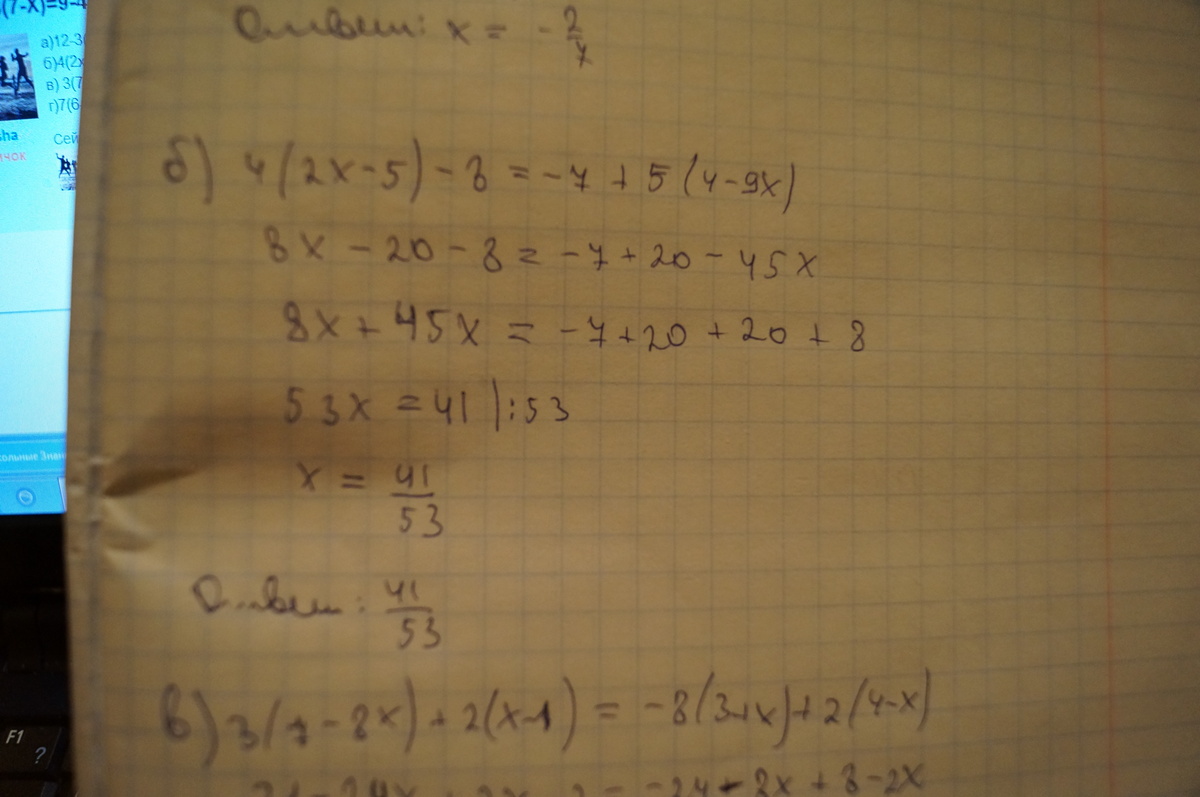 (7-x)=9-4
а)12-3(
б)4(2x
в) 3(7
г)7(6
sha
Сей
ичок
сольные Знан
F1
?
Ответ: x = -2/7
б) 4(2x-5)-8=-7+5(4-9x)
8x-20-8=-7+20-45x
8x+45x=-7+20+20+8
53x=41 |:53
x = 41/53
Ответ: 41/53
в) 3(7-8x)+2(x-1)=-8(3+x)+2(4-x)
21-24x+2x-2=-24-8x+8-2x